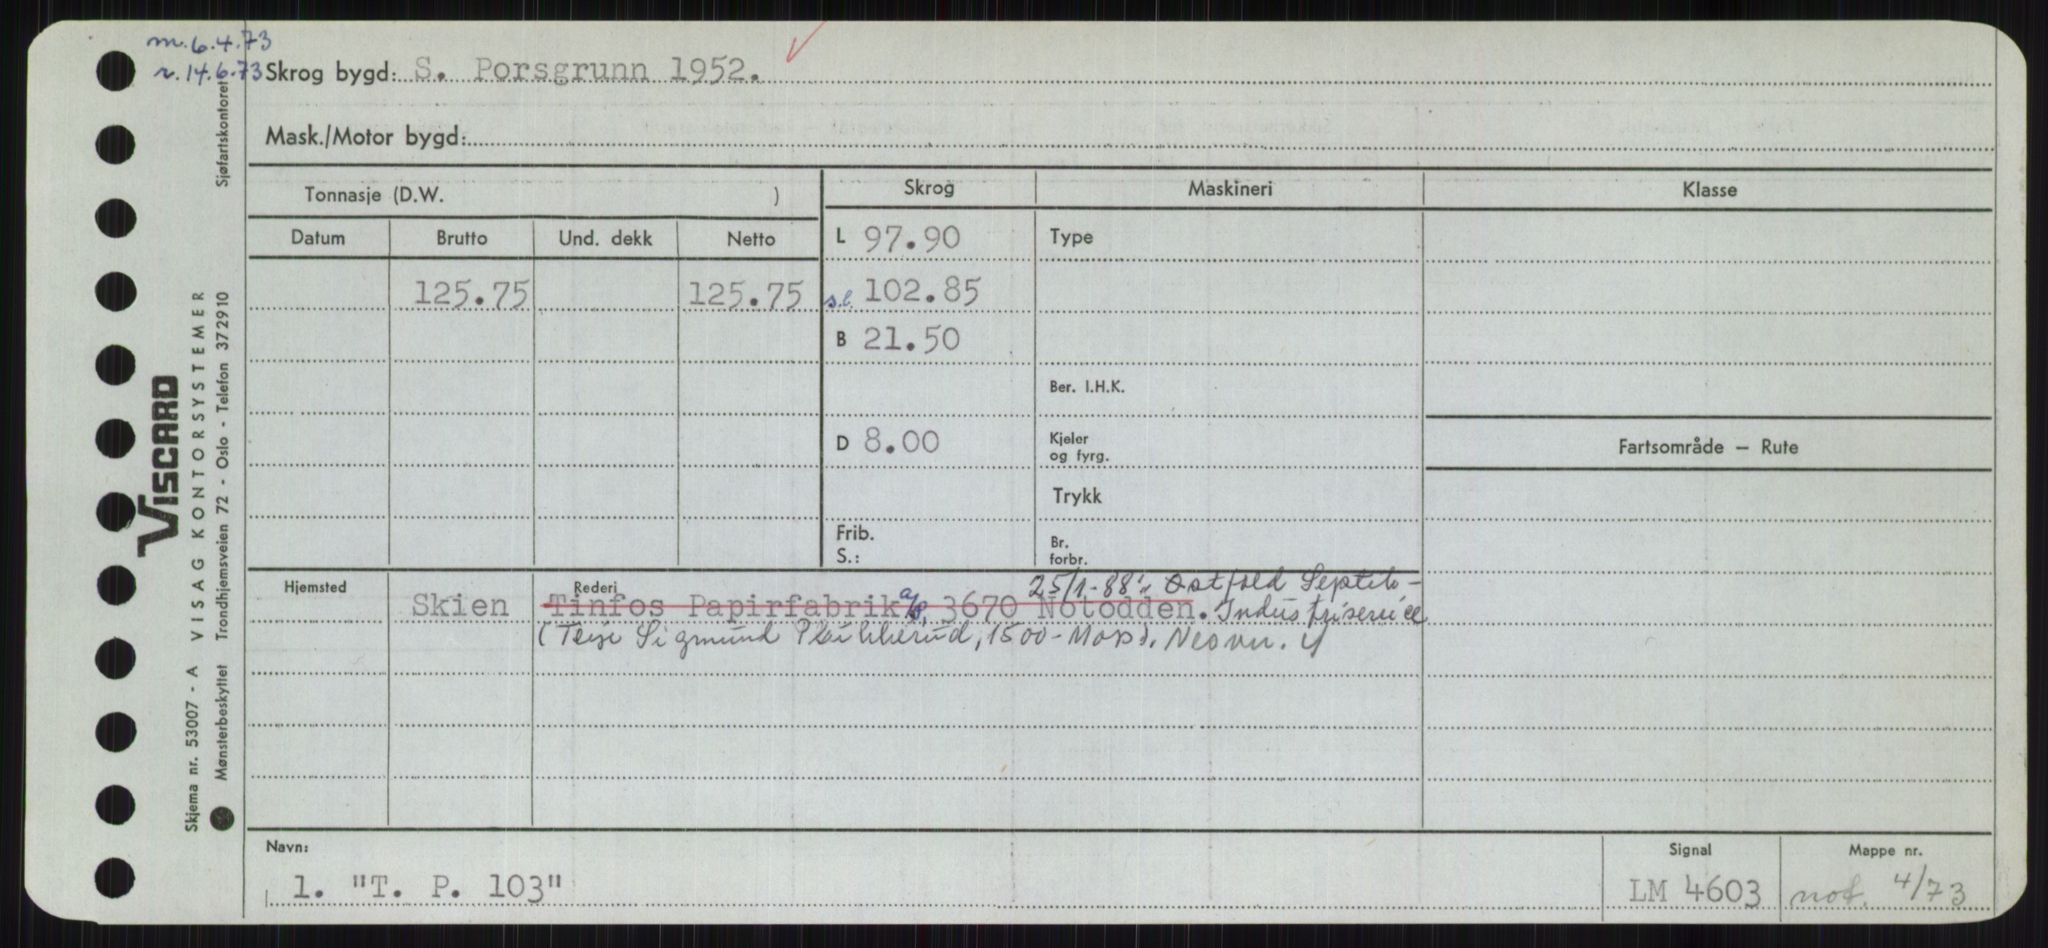 m. 6.4.73
r. 14.6.73 Skrog bygd: S. Porsgrunn 1952.
Mask./Motor bygd:
Tonnasje (D.W. )
Skrog Maskineri Klasse
Datum Brutto Und. dekk Netto
L 97.90 Type
125.75 125.75 s.l. 102.85
B 21.50
Ber. I.H.K.
D 8.00 Kjeler og fyrg.
Fartsområde — Rute
Trykk
Frib. S.:
Br. forbr.
Hjemsted Rederi 25/1-88: Østfold Septik-
Skien Tinfos Papirfabrik a/s, 3670 Notodden. Industriservice
(Terje Sigmund 1500 - Moss).
Navn: Signal Mappe nr.
1. "T. P. 103" LM 4603 not. 4/73
Skjema nr. 53007 - A VISAG KONTORSYSTEMER
Mønsterbeskyttet Trondhjemsveien 72 - Oslo - Telefon 372910 Sjøfartskontoret
VISCARD